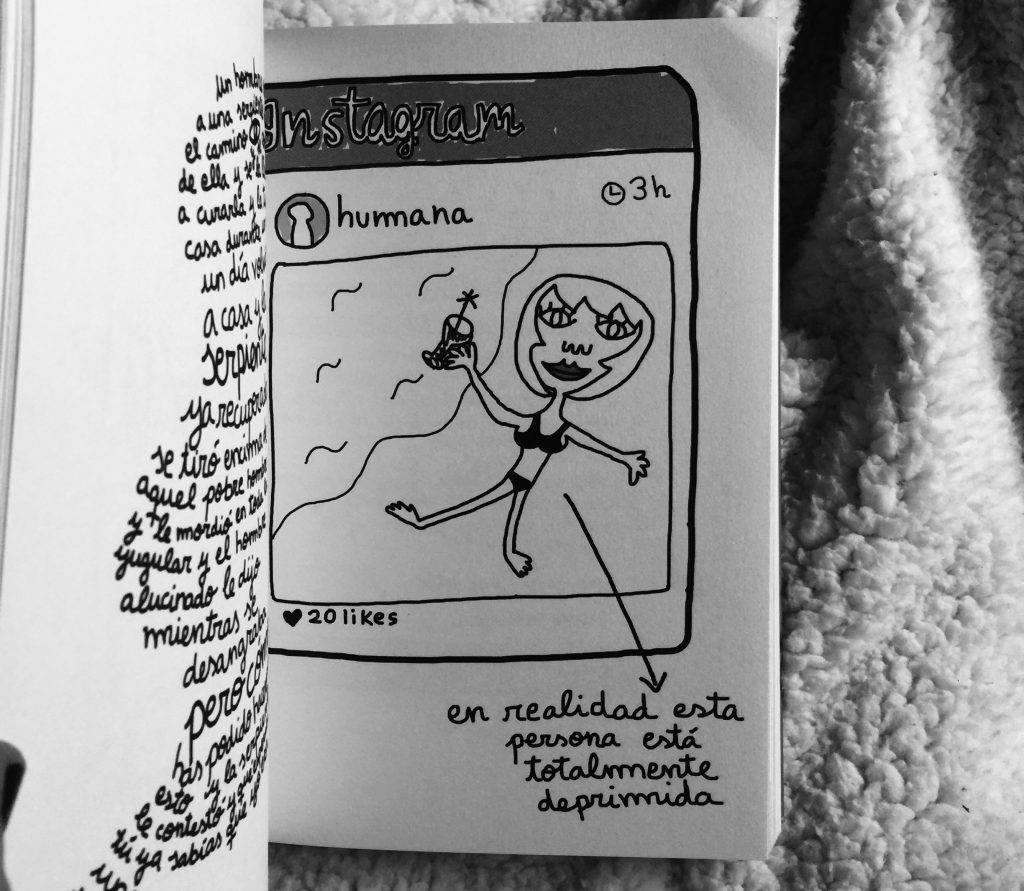 un
a una
el camino
de ella y
a curarla y
casa
un día
a casa y
serpiente
ya
se tiró encima
aquel pobre hombre
y le mordió en toda
yugular y el hombre
alucinado le dijo
mientras se
desangraba
pero
has podido
esto y la
le contestó
tú ya sabías que
Instagram
humana
3h
20 likes
en realidad esta
persona está
totalmente
deprimida